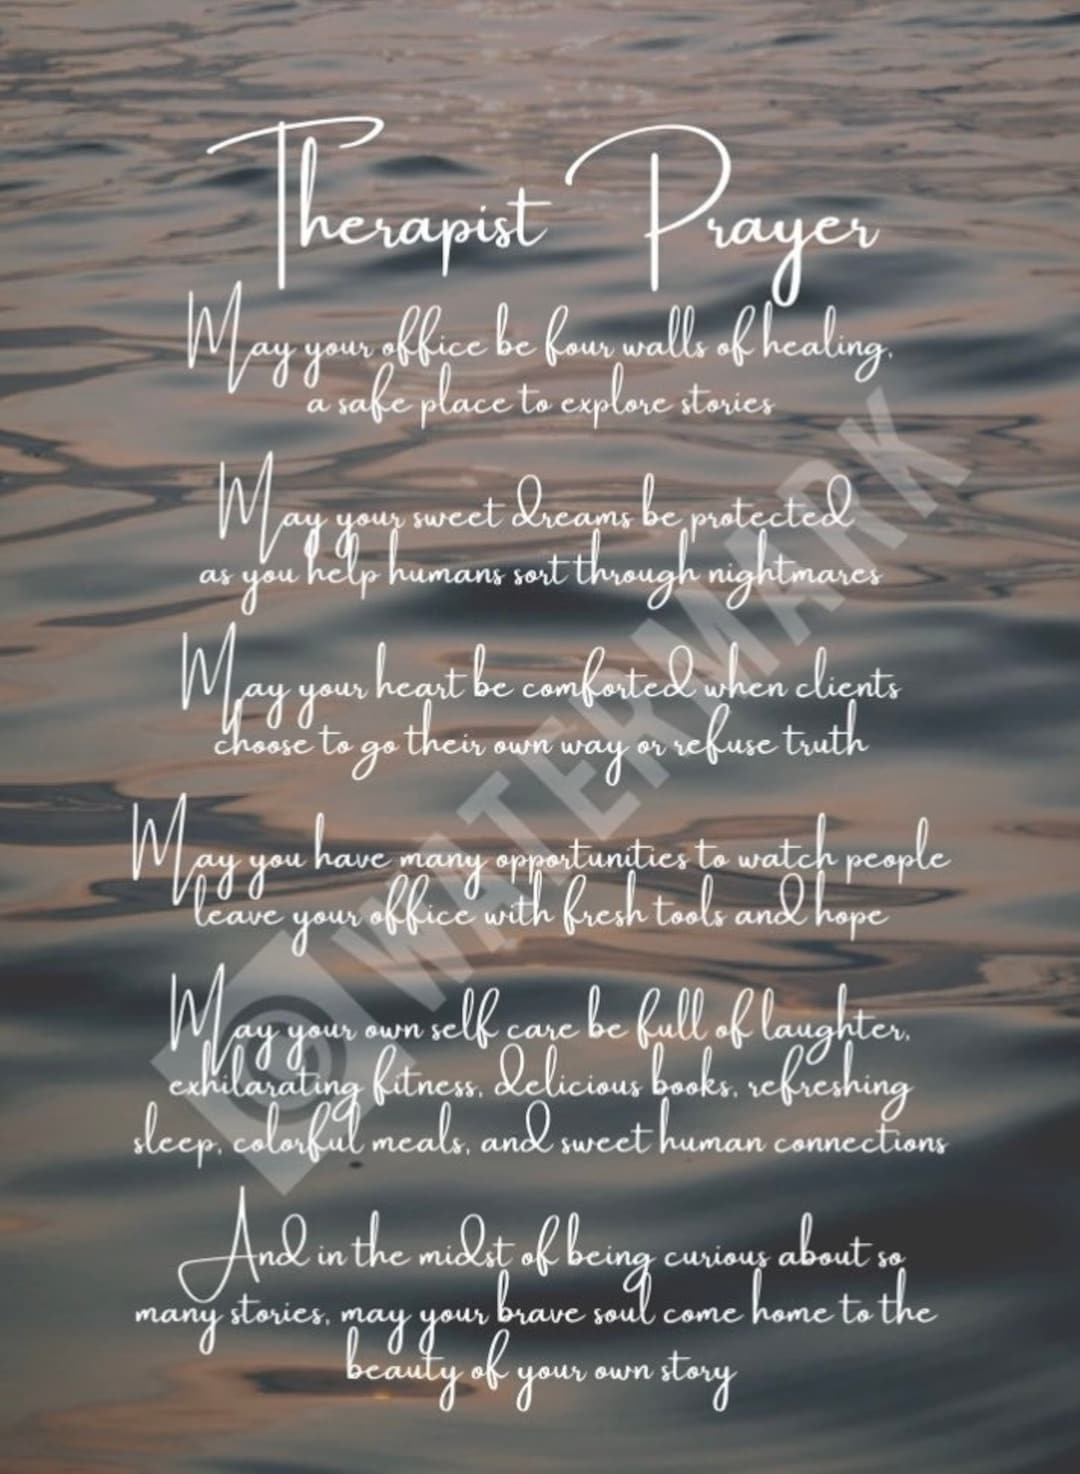 Therapist Prayer
May your office be four walls of healing,
a safe place to explore stories
May your sweet dreams be protected
as you help humans sort through nightmares
May your heart be comforted when clients
choose to go their own way or refuse truth
May you have many opportunities to watch people
leave your office with fresh tools and hope
May your own self care be full of laughter,
exhilarating fitness, delicious books, refreshing
sleep, colorful meals, and sweet human connections
And in the midst of being curious about so
many stories, may your brave soul come home to the
beauty of your own story
WATERMARK